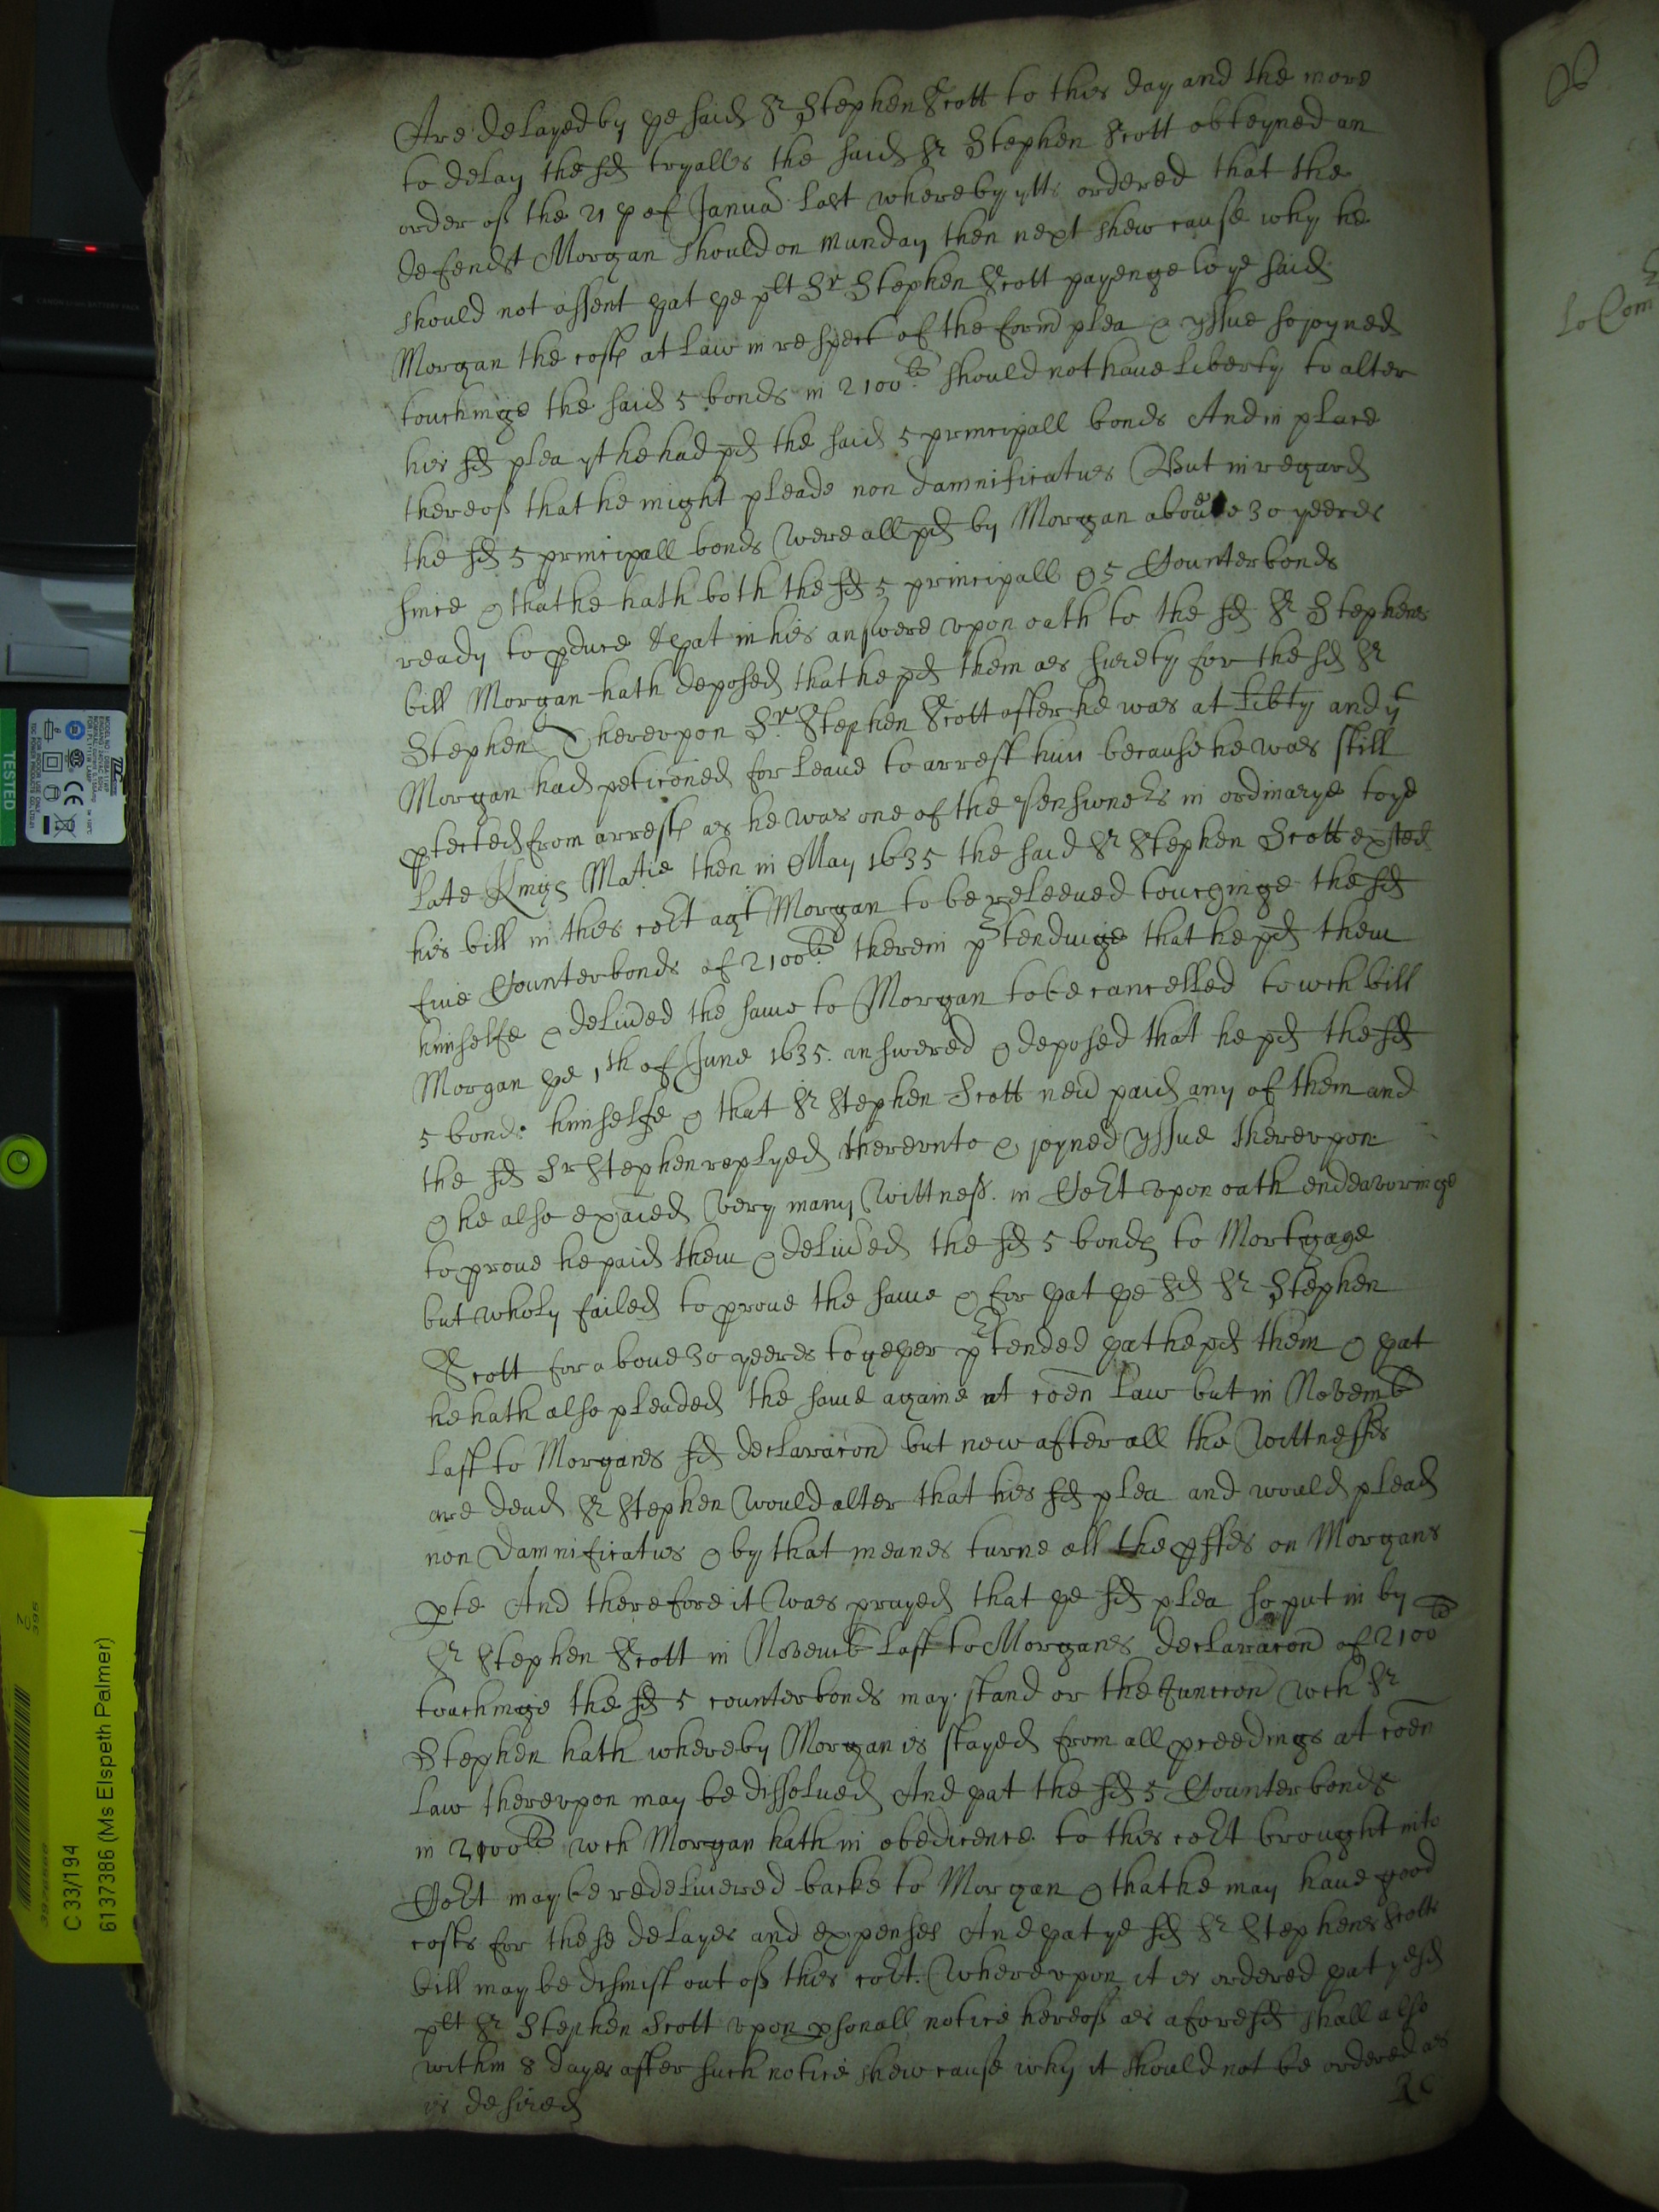 Are delayed by ye said Sr Stephen Scott to this day and the more
to delay the sd tryalls the said Sr Stephen Scott obteyned an
order of the 21th of Januar last whereby ytts ordered that the
defendt Morgan should on Munday then next shew cause why he
should not assent yat ye plt Sr Stephen Scott payenge to ye said
Morgan the costs at law in respect of the formr plea & yssue so joyned
touchinge the said 5 bonds in 2100li should not haue liberty to alter
his sd plea yt he had pd the said 5 principall bonds And in place
thereof that he might pleade non damnificatus But in regard
the sd 5 principall bonds were all pd by Morgan aboue 30 yeeres
since & that he hath both the sd 5 principall & 5 Counterbonds
ready to pduce & yat in his answere vpon oath to the sd Sr Stephens
bill Morgan hath deposed that he pd them as suerty for the sd Sr
Stephen Therevpon Sr Stephen Scott after he was at libty and yt
Morgan had peticoned for leaue to arrest him because he was still
ptected from arrests as he was one of the Pensiwners in ordinarye to ye
late Kings Matie then in May 1635 the said Sr Stephen Scott exted
his bill in this cort agt Morgan to be releeued touchinge the sd
fiue Counterbonds of 2100li therein prtendinge that he pd them
himselfe & deliued the same to Morgan to be cancelled to wch bill
Morgan ye 1th of June 1635. answered & deposed that he pd the sd
5 bonds himselfe & that Sr Stephen Scott neu paid any of them and
the sd Sr Stephen replyed therevnto & joyned yssue therevpon
& he also exaied very many Wittness. in Cort vpon oath endeavoringe
to proue he paid them & deliued the sd 5 bonds to Mortgage
but wholy failed to proue the same & for yat ye sd Sr Stephen
Scott for aboue 30 yeeres togeyer prtended yat he pd them & yat
he hath also pleaded the same againe at coen law but in Novemb
last to Morgans sd declaracon but now after all the Wittnesses
are dead Sr Stephen would alter that his sd plea and would plead
non Damnificatus & by that meanes turne all the pffes on Morgans
pte And therefore it was prayed that ye sd plea so put in by
Sr Stephen Scott in Novemb last to Morganes declaracon of 2100li
touchinge the sd 5 counterbonds may stand or the Juncion wch Sr
Stephen hath whereby Morgan is stayed from all pceedings at coen
law therevpon may be dissolued And yat the sd 5 Counterbonds
in 2100li wch Morgan hath in obedience to this cort brought into
Cort may be redeliuered backe to Morgan & that he may haue good
costs for these delayes and expenses And yat ye sd Sr Stephens Scotts
bill may be dismist out of this cort. Wherevpon it is ordered yat ye sd
plt Sr Stephen Scott vpon psonall notice hereof as aforesd shall also
within 8 dayes after such notice shew cause why it should not be ordered as
is desired
TESTED
C 33/194
6137386 (Ms Elspeth Palmer)